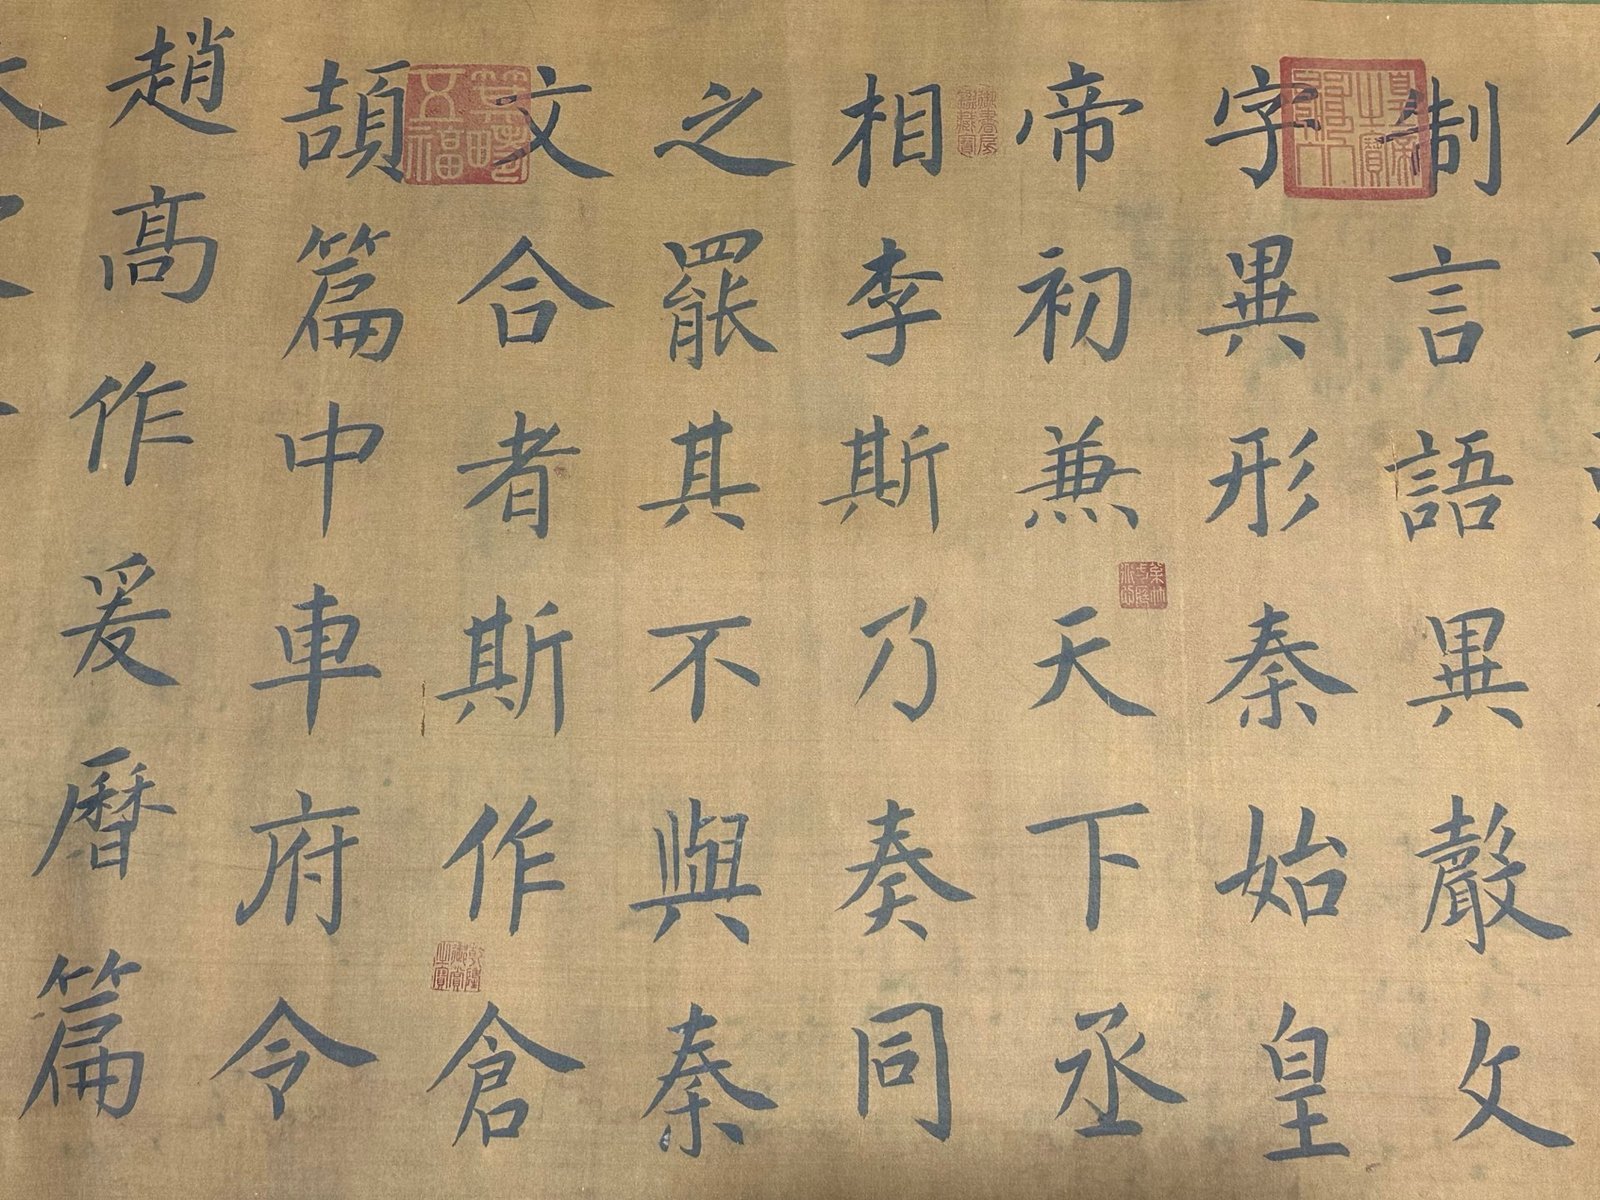 制言語異聲文
字異形秦始皇
帝初兼天下丞
相李斯乃奏同
之罷其不與秦
文合者斯作倉
頡篇中車府令
趙髙作爰曆篇